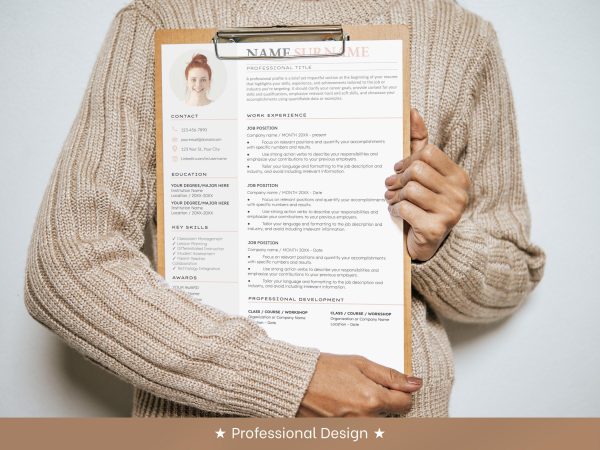 NAME SURNAME
PROFESSIONAL TITLE
A professional profile is a brief yet impactful section at the beginning of your resume
that highlights your skills, experience, and achievements tailored to the job or
industry you're targeting. It should clarify your career goals, provide context for your
skills and qualifications, emphasize relevant hard and soft skills, and showcase your
accomplishments using quantifiable data or examples.
CONTACT
123-456-7890
your.mail@domail.com
123 Your St., Your City
LinkedIn.com/in/username
EDUCATION
YOUR DEGREE/MAJOR HERE
Institution Name
Location / 20XX-20XX
YOUR DEGREE/MAJOR HERE
Institution Name
Location / 20XX-20XX
KEY SKILLS
✓ Classroom Management
✓ Lesson Planning
✓ Differentiated Instruction
✓ Student Assessment
✓ Parent-Teacher
Collaboration
✓ Technology Integration
AWARDS
YOUR AWARD
WORK EXPERIENCE
JOB POSITION
Company name / MONTH 20XX - present
• Focus on relevant positions and quantify your accomplishments
with specific numbers.
• Use strong action verbs to describe your responsibilities and
emphasize your contributions to your previous employers.
• Tailor your language and formatting to the job description and
industry, and avoid including irrelevant information.
JOB POSITION
Company name / MONTH 20XX - Date
• Focus on relevant positions and quantify your accomplishments
with specific numbers.
• Use strong action verbs to describe your responsibilities and
emphasize your contributions to your previous employers.
• Tailor your language and formatting to the job description and
industry, and avoid including irrelevant information.
JOB POSITION
Company name / MONTH 20XX - Date
• Focus on relevant positions and quantify your accomplishments
with specific numbers.
• Use strong action verbs to describe your responsibilities and
emphasize your contributions to your previous employers.
• Tailor your language and formatting to the job description and
industry, and avoid including irrelevant information.
PROFESSIONAL DEVELOPMENT
CLASS / COURSE / WORKSHOP
Organization or Company Name
Location - Date
CLASS / COURSE / WORKSHOP
Organization or Company Name
Location - Date
★ Professional Design ★